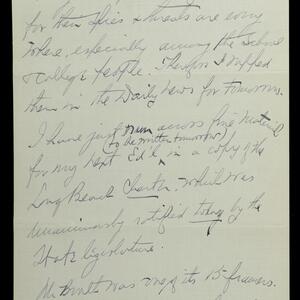 for their spies & threats are every
where, especially among the school
& college people. Therefore I ripped
them in the Daily News for tomorrow.
I have just run across fine material
(to be written tomorrow)
for my next Ed'l, in a copy of the
Long Beach Charter, which was
unanimously ratified today by the
State legislature.
Mr. was one of its 15 framers.